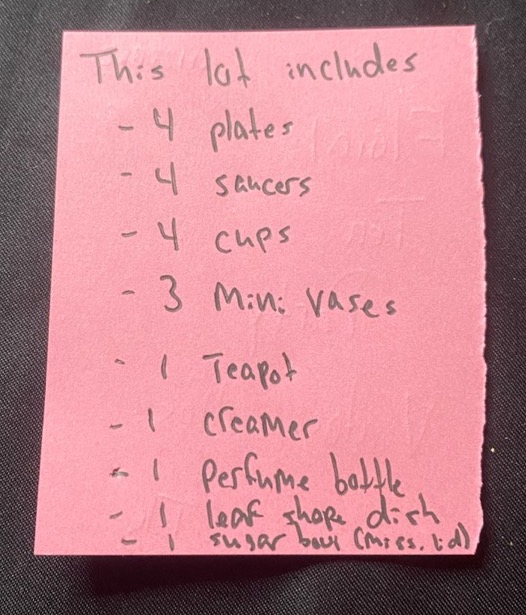 This lot includes
- 4 plates
- 4 saucers
- 4 cups
- 3 Mini vases
- 1 Teapot
- 1 creamer
- 1 perfume bottle
- 1 leaf shape dish
- 1 sugar bowl (miss. lid)